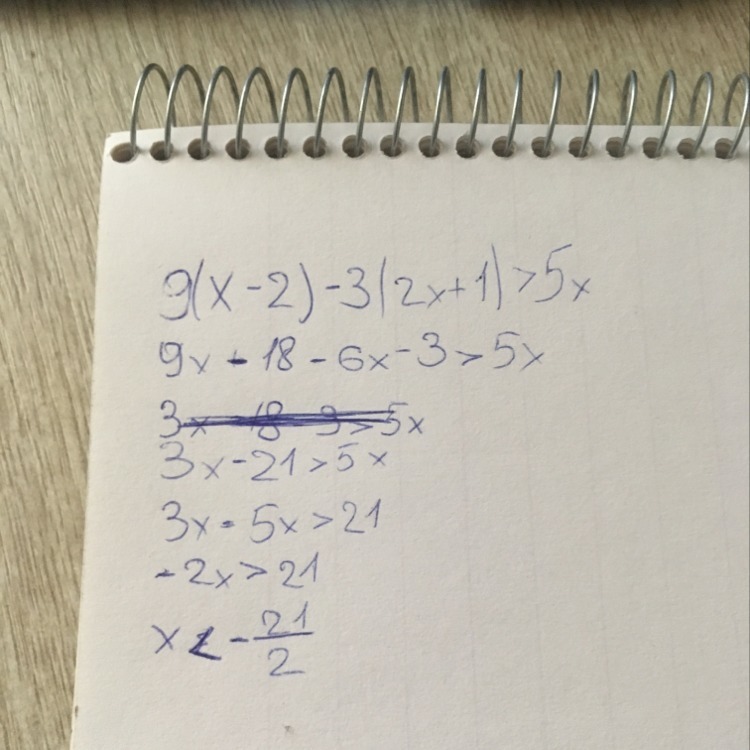 9(x-2)-3(2x+1)>5x
9x-18-6x-3>5x
3x-18-3>5x
3x-21>5x
3x-5x>21
-2x>21
x<-21/2